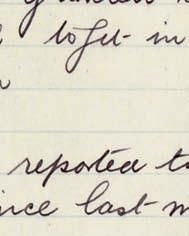 to get in
reported to
ince last m